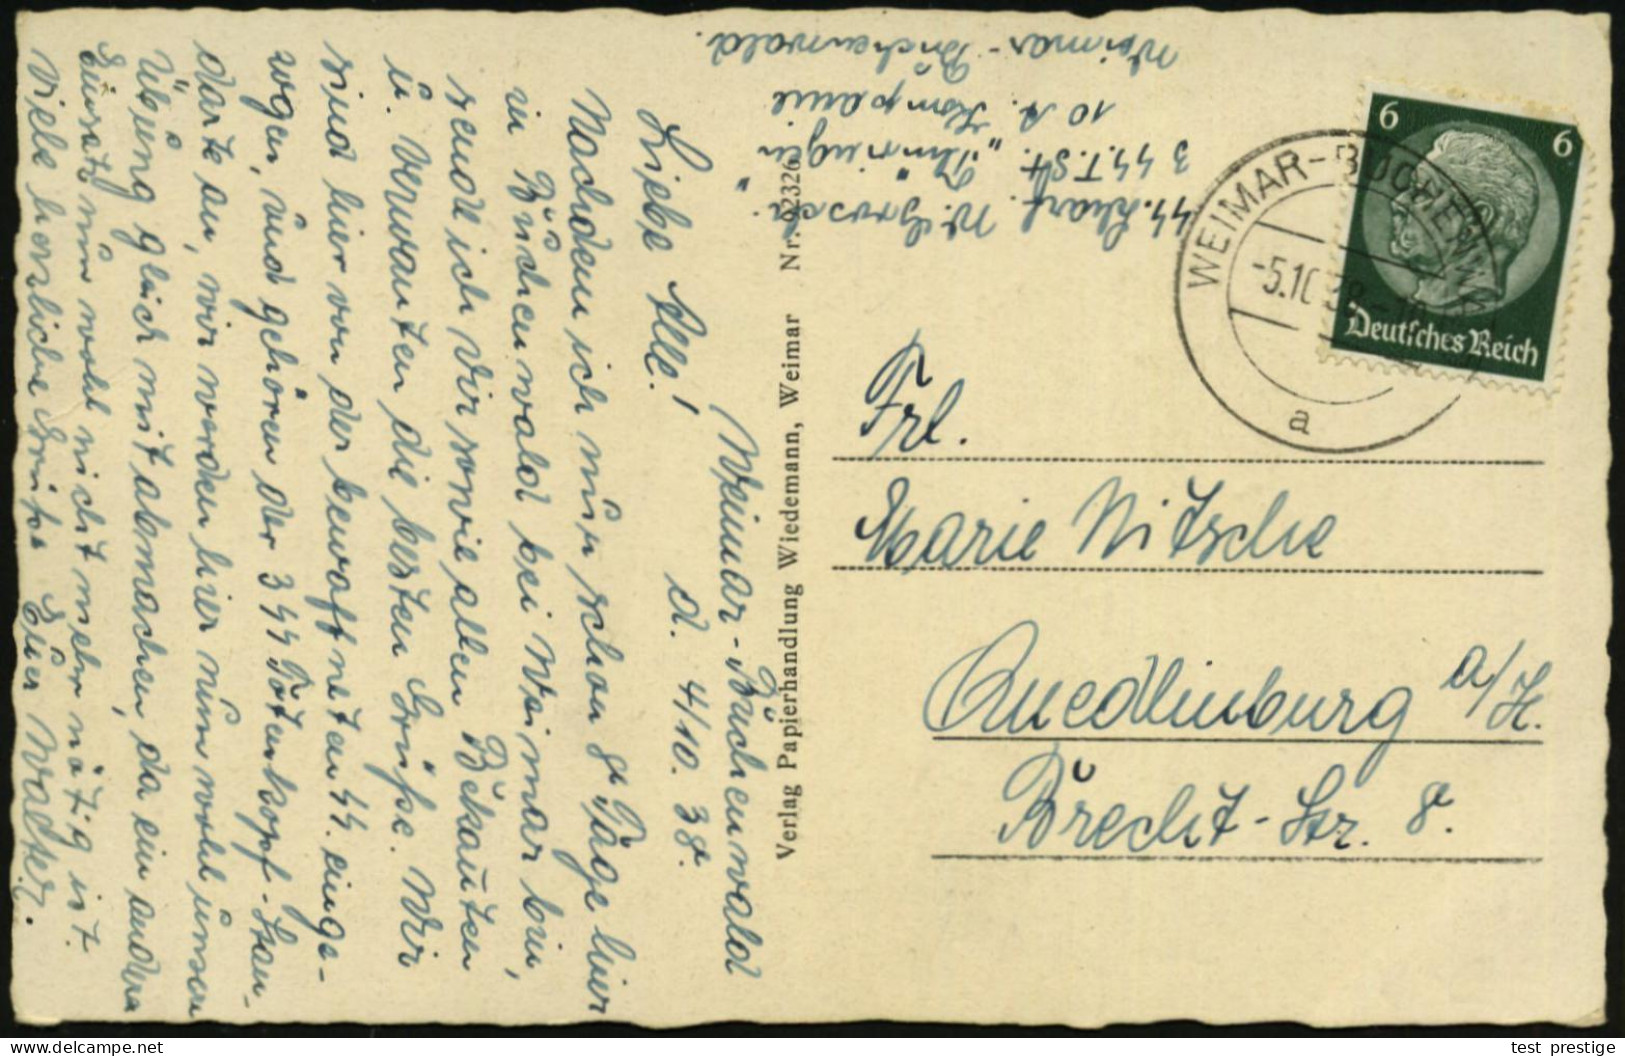 Weimar-Buchenwald
d. 4/10. 38.
Liebe Alle!
Nachdem ich nun schon 8 Tage hier
in Buchenwald bei Weimar bin,
sende ich Dir sowie allen Bekannten
u. Verwanten die besten Grüße. Wir
sind hier von der bewaffneten SS. einge-
wogen, und gehören der 3 SS Totenkopf-Stan-
darte an, wir werden hier nun wohl unsere
Übung gleich mit abmachen, da ein andere
Einsatz nun wohl nicht mehr nötig ist.
Viele herzliche Grüße Euer Walter.
SS. Scharf. W. Grosch
3 SS.T.St. „Thüringen“
10 A. Kompanie
Weimar-Buchenwald.
Verlag Papierhandlung Wiedemann, Weimar Nr. 02326
WEIMAR-BUCHENW
-5.10 38-
a
6 6
Deutsches Reich
Frl.
Marie Nitsche
Quedlinburg a/H.
Brecht-Str. 8.
test prestige